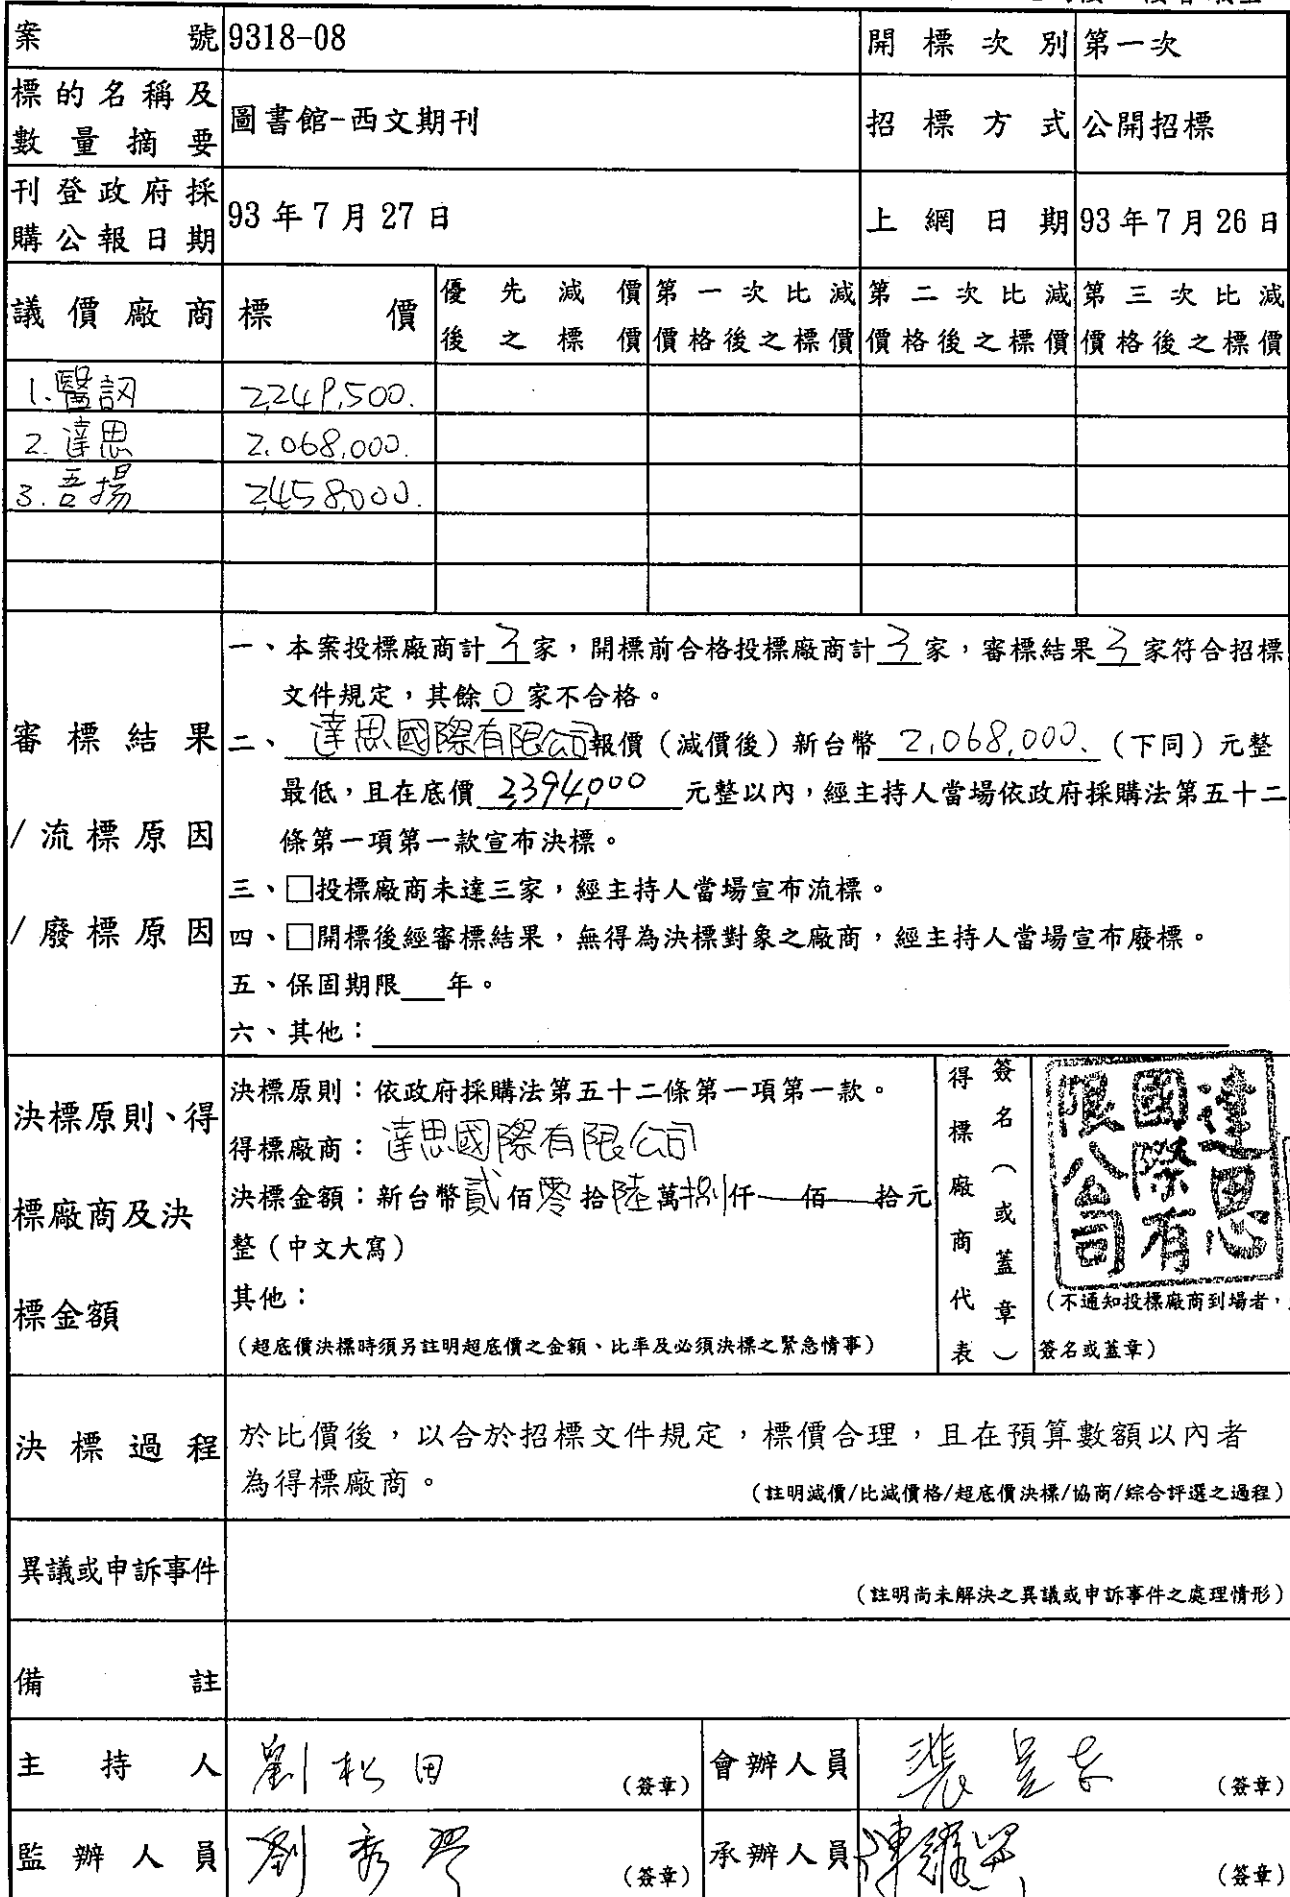 案號 9318-08 開標次別 第一次
標的名稱及數量摘要 圖書館-西文期刊 招標方式 公開招標
刊登政府採購公報日期 93年7月27日 上網日期 93年7月26日
議價廠商 標價 優先減價後之標價 第一次比減價格後之標價 第二次比減價格後之標價 第三次比減價格後之標價
1.醫訊 2,249,500.
2.達思 2,068,000.
3.吾揚 2,458,000.
審標結果/流標原因/廢標原因
一、本案投標廠商計3家,開標前合格投標廠商計3家,審標結果3家符合招標
文件規定,其餘0家不合格。
二、達思國際有限公司報價(減價後)新台幣2,068,000.(下同)元整
最低,且在底價2,394,000元整以內,經主持人當場依政府採購法第五十二
條第一項第一款宣布決標。
三、□投標廠商未達三家,經主持人當場宣布流標。
四、□開標後經審標結果,無得為決標對象之廠商,經主持人當場宣布廢標。
五、保固期限___年。
六、其他:
決標原則、得標廠商及決標金額
決標原則:依政府採購法第五十二條第一項第一款。
得標廠商:達思國際有限公司
決標金額:新台幣貳佰零拾陸萬捌仟—佰—拾元
整(中文大寫)
其他:
(超底價決標時須另註明超底價之金額、比率及必須決標之緊急情事)
得標廠商代表
簽名(或蓋章)
達思國際有限公司
(不通知投標廠商到場者,
簽名或蓋章)
決標過程
於比價後,以合於招標文件規定,標價合理,且在預算數額以內者
為得標廠商。 (註明減價/比減價格/超底價決標/協商/綜合評選之過程)
異議或申訴事件 (註明尚未解決之異議或申訴事件之處理情形)
備註
主持人 劉松田 (簽章) 會辦人員 (簽章)
監辦人員 劉秀 (簽章) 承辦人員 陳 (簽章)